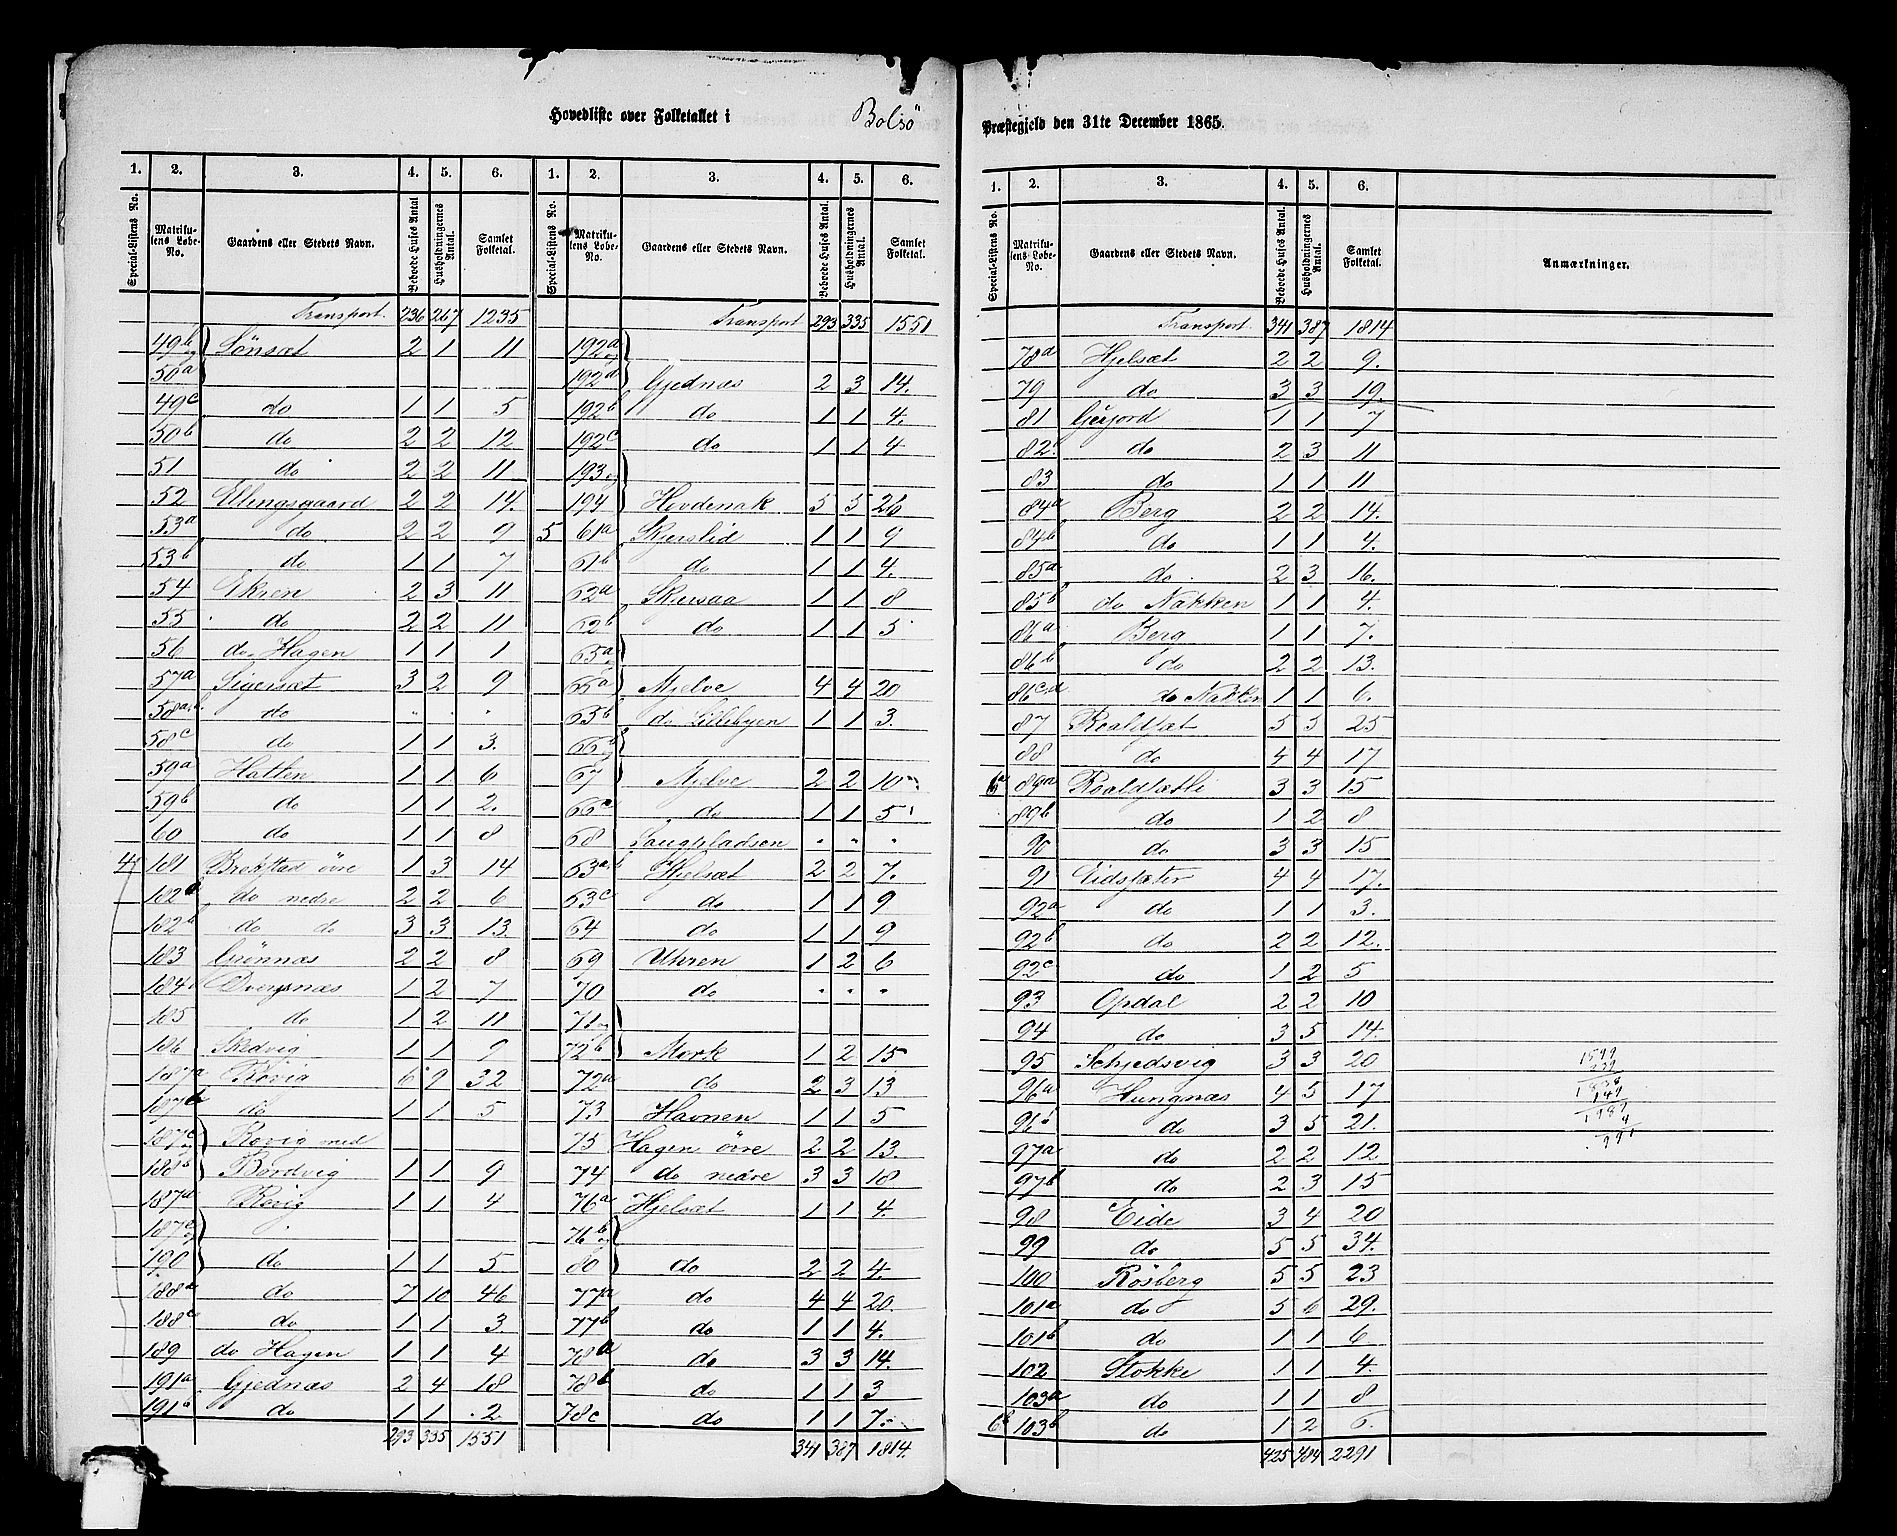 Hovedliste over Folketallet i Bolsö Præstegjeld den 31te December 1865.
1. 2. 3. 4. 5. 6.
Special-Listens No. Matrikulens Løbe-No. Gaardens eller Stedets Navn. Beboede Huses Antal Husholdningernes Antal. Samlet Folketal.
Transport. 236 267 1235
49b og 50a Sönsæt 2 1 11
49c do 1 1 5
50b do 2 2 12
51 do 2 2 11
52 Ellingsgaard 2 2 14.
53a do 2 2 9
53b do 1 1 7
54 Ekren 2 3 11
55 do 2 2 11
56 do Hagen 1 1 1
57a Sigersæt 3 2 9
58a do " " "
58c do 1 1 3.
59a Hatlen 1 1 6
59b do 1 1 2.
60 do 1 1 8
4 181 Brekstad övre 1 3 14
182a do nedre 2 2 6
182b do do 3 3 13.
183 Grönnæs 2 2 8
184 Dvergsnæs 1 2 7
185 do 1 2 11
186 Skedvig 1 1 9
187a Rövig 6 9 32
187b do 1 1 5
187c Rövig med
188b Bordvig 1 1 9
187d Rövig 1 1 4
187e og
190 do 1 1 5
188a do 7 10 46
188c do 1 1 3.
189 do Hagen 1 1 4
191a Gjednæs 2 4 18
191b do 1 1 2
293 335 1551
1. 2. 3. 4. 5. 6.
Special-Listens No. Matrikulens Løbe-No. Gaardens eller Stedets Navn. Beboede Huses Antal. Husholdningernes Antal. Samlet Folketal.
Transport 293 335 1551
192a og
192d Gjednæs 2 3 14.
192b do 1 1 4.
192c do 1 1 4
193 og
194 Hovdenak 5 5 26
5 61a Skjerslid 1 1 9
61b do 1 1 4.
62a Skjersaa 1 1 8
62b do 1 1 5
65a og
66a Mjelve 4 4 20
65b do Lillebyen 1 1 3.
66b og
67 Mjelve 2 2 10
66c do 1 1 5
68 Saugpladsen " " "
63ab Hjelsæt 2 2 7.
63c do 1 1 9
64 do 1 1 9
69 Uhren 1 2 6
70 do " " "
71 og
72b Mork 1 2 15
72a do 2 3 13
73 Havnen 1 1 5
75 Hagen övre 2 2 13.
74 do nedre 3 3 18
76a Hjelsæt 1 1 4.
76b og
80 do 2 2 4.
77a do 4 4 20.
77b do 1 1 4.
78a do 3 3 14.
78b do 1 1 3
78c do 1 1 7
341 387 1814.
1. 2. 3. 4. 5. 6.
Special-Listens No. Matrikulens Løbe-No. Gaardens eller Stedets Navn. Beboede Huses Antal. Husholdningernes Antal. Samlet Folketal. Anmærkninger.
Transport. 341 387 1814
78a Hjelsæt 2 2 9.
79 do 3 3 19.
81 Gujord 1 1 7
82 do 2 3 11
83 do 1 1 11
84a Berg 2 2 14.
84b do 1 1 4.
85a do 2 3 16.
85b do Nakken 1 1 4.
86a Berg 1 1 7.
86b do 2 2 13.
86c,d do Nakken 1 1 6.
87 Roaldsæt 5 5 25
88 do 4 4 17
6a 89a Roaldsætli 3 3 15
89b do 1 2 8
90 do 3 3 15
91 Eidsfæter 4 4 17.
92a do 1 1 3.
92b do 2 2 12.
92c do 1 2 5
93 Opdal 2 2 10
94 do 3 5 14.
95 Schjedsvig 3 3 20
96a Hungnæs 4 5 17
96b do 3 5 21.
97a do 2 2 12
97b do 2 3 15
98 Eide 3 4 20
99 do 5 5 34.
100 Rösberg 5 5 23
101a do 5 6 29.
101b do 1 1 6
102 Stokke 1 1 4.
103a do 1 1 8
6b 103b do 1 2 6.
425 484 2291